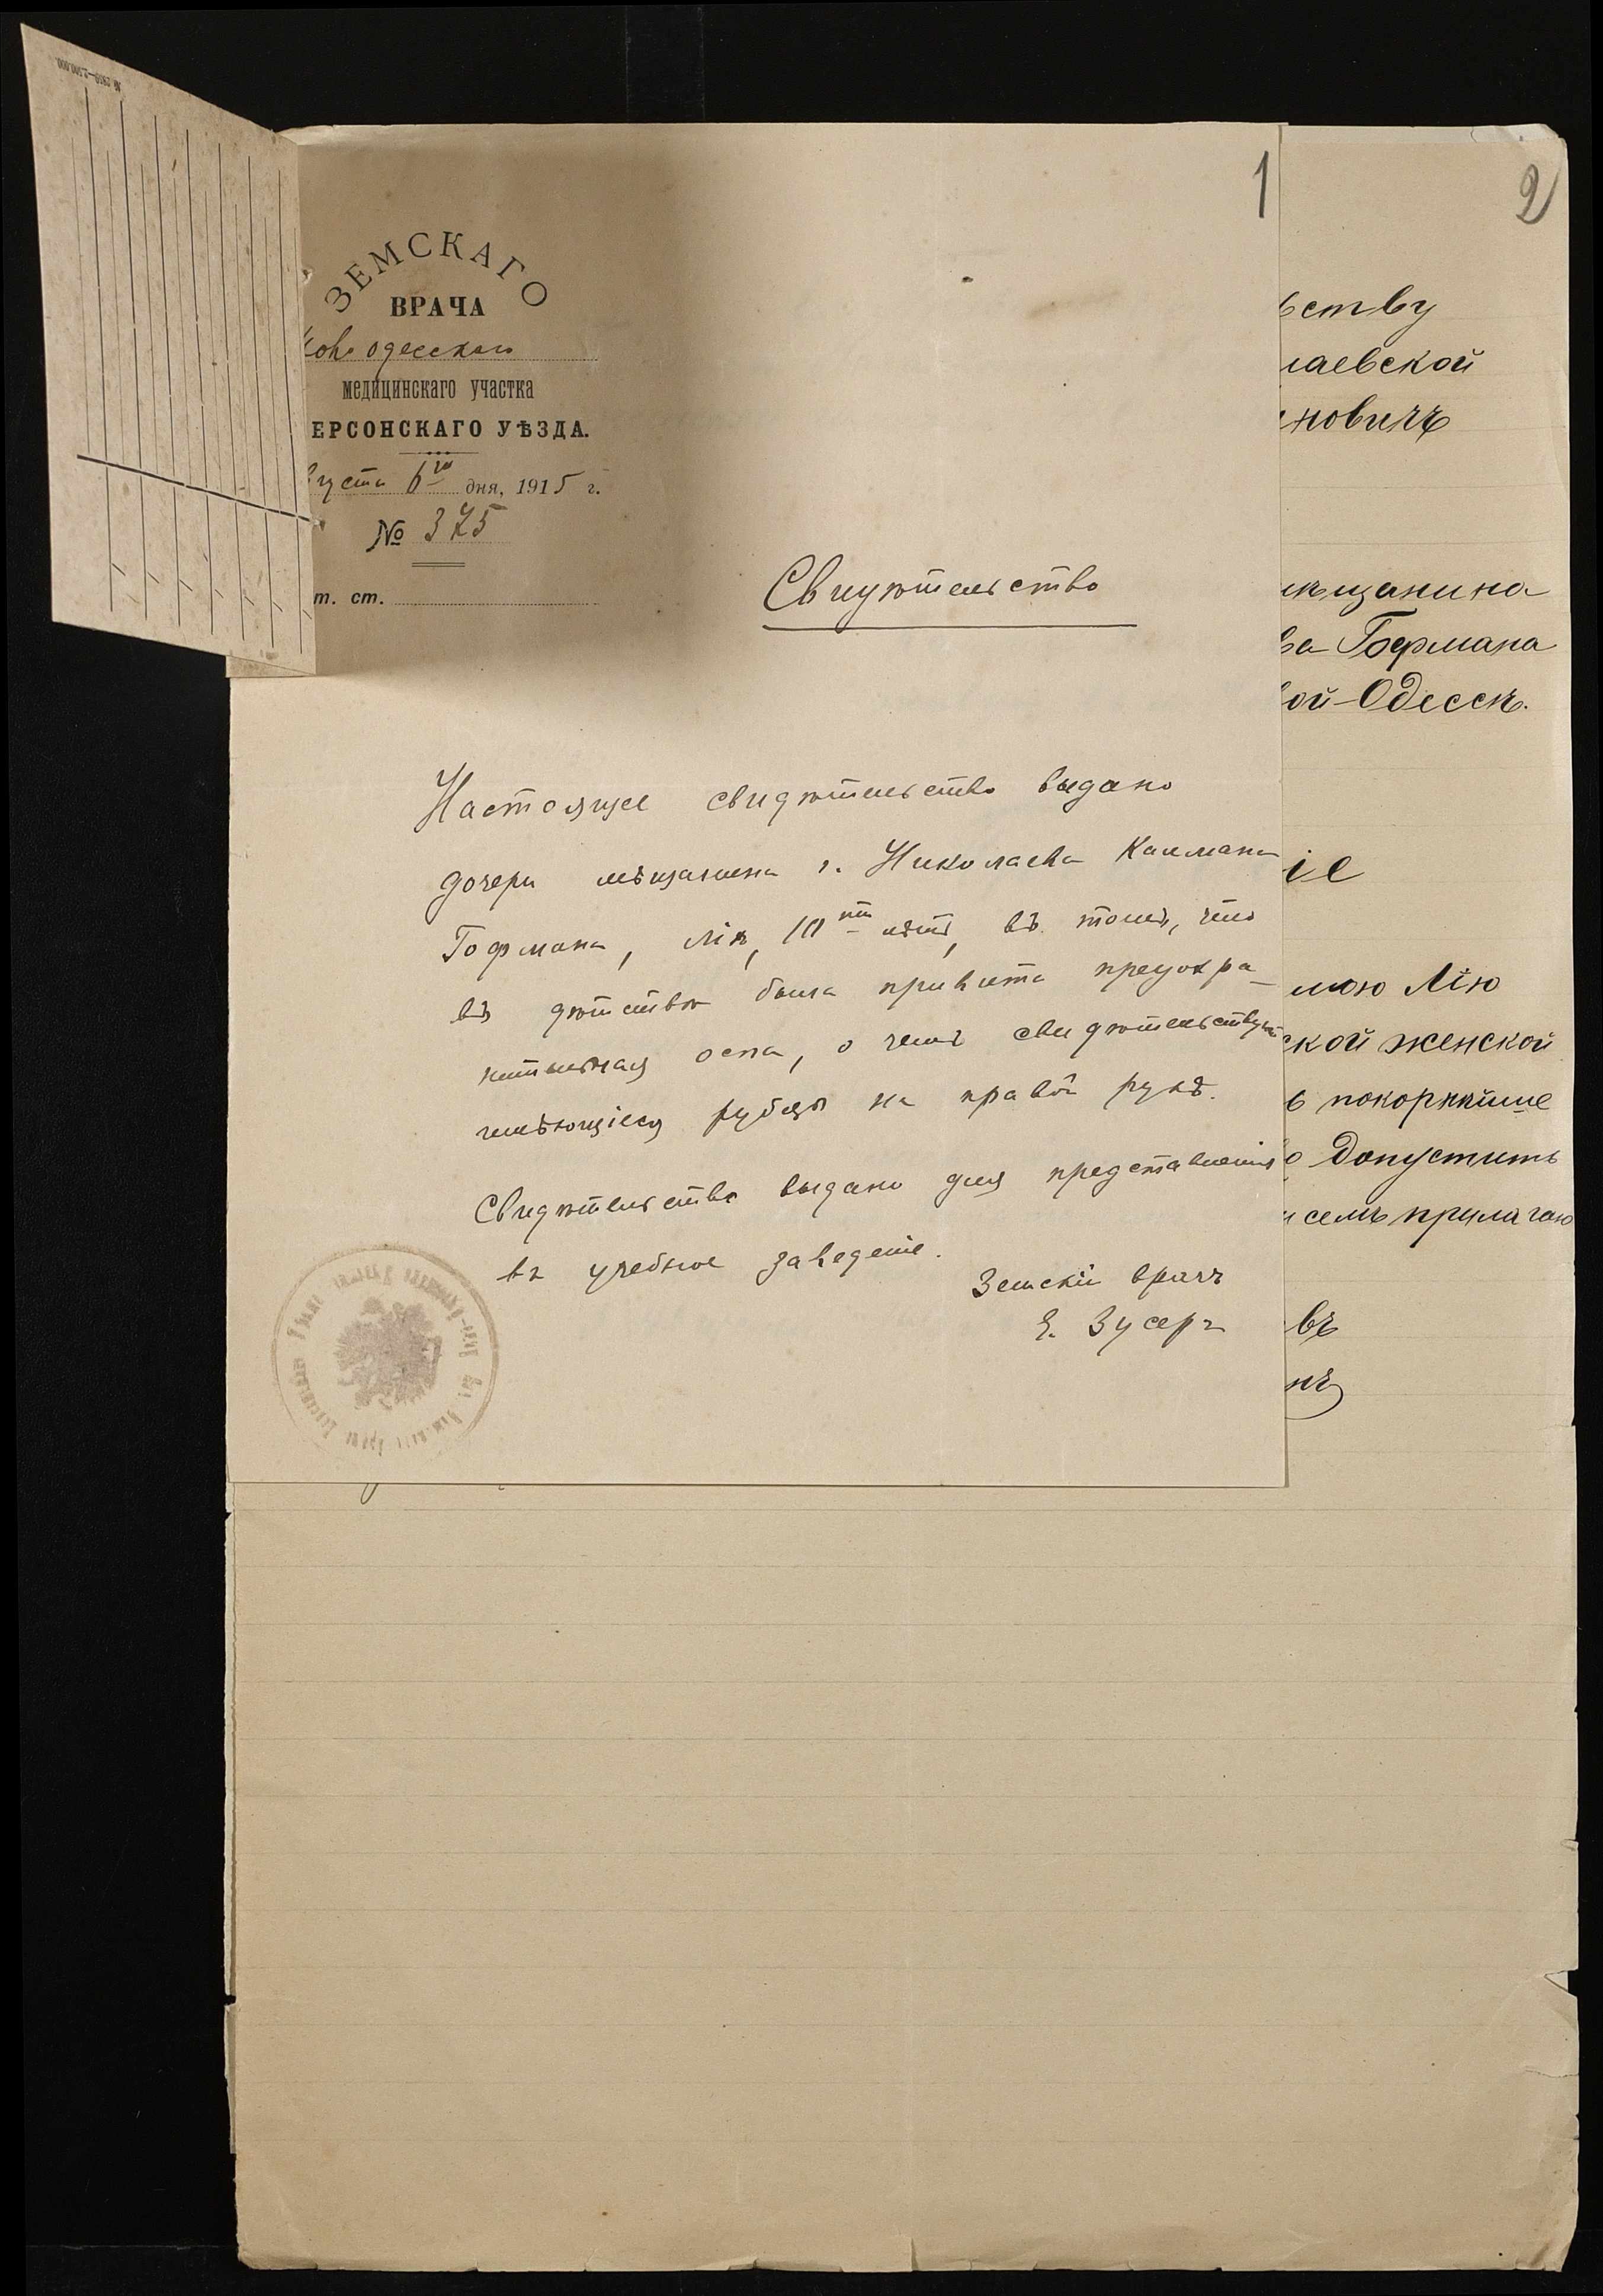 1
2
ЗЕМСКАГО
ВРАЧА
ново одесскаго
медицинскаго участка
ЕРСОНСКАГО УѢЗДА.
густа 6го дня, 1915 г.
№ 375
т. ст.
Свидѣтельство
Настоящее свидѣтельство выдано
дочери мѣщанина г. Николаева Калмана
Гофмана, Лiѣ, 10ти лѣтъ, въ томъ, что
въ дѣтствѣ была привита предохра-
нительная оспа, о чемъ свидѣтельствуютъ
имѣющiеся рубцы на правой рукѣ.
Свидѣтельство выдано для представленiя
въ учебное заведенiе.
Земскiй врачъ
ьству
лаевской
новичъ
мѣщанина
ва Гофмана
ой-Одессѣ.
iе
мою Лiю
ской женской
ь покорнѣйше
о допустить
и семъ прилагаю
въ
нъ